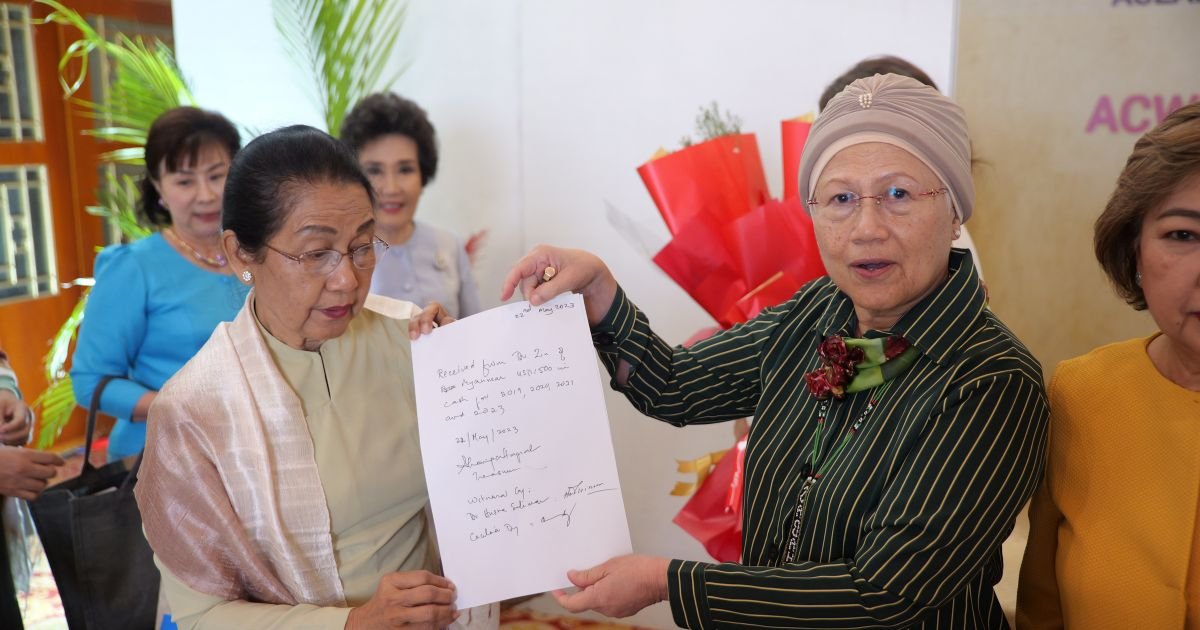 ACW
22nd May 2023
Received from Dr Zin of
Myanmar US$1,500 in
cash for 2019, 2020, 2021
and 2023
22/May/2023
Treasurer
Witnessed by:
Dr Husna Sulaiman